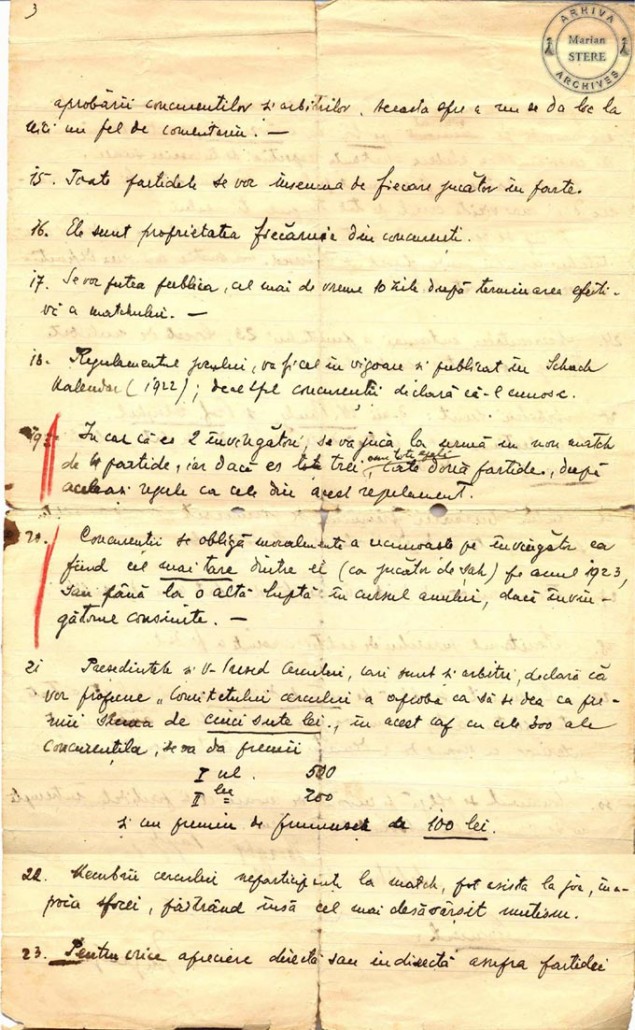 3
ARHIVA
Marian
STERE
ARCHIVES
aprobării concurenților și arbitrilor. Aceasta spre a nu se da loc la
nici un fel de comentarii. —
15. Toate partidele se vor însemna de fiecare jucător în parte.
16. Ele sunt proprietatea fiecăruia din concurenți.
17. Se vor putea publica, cel mai de vreme 10 zile după terminarea efecti-
vă a matchului. —
18. Regulamentul jocului, va fi cel în vigoare și publicat în Schach
Kalender (1922); de el concurenții declară că-l cunosc.
19. În caz că es 2 învingători, se va juca la urmă un nou match
de 4 partide, iar dacă es toți trei, câte două partide, după
aceleași regule ca cele din acest regulament.
20. Concurenții se obligă moralmente a recunoaște pe învingător ca
fiind cel mai tare dintre ei (ca jucător de șah) pe anul 1923,
sau până la o altă luptă în cursul anului, dacă învin-
gătorul consimte. —
21 Președintele și V-Președ cercului, cari sunt și arbitri, declară că
vor propune „Comitetului cercului a aproba ca să se dea ca pre-
mii suma de cinci sute lei., în acest caz cu cele 300 ale
concurenților, se va da premii
I ul. 500
II lea 200
și un premiu de frumusețe de 100 lei.
22. Membrii cercului neparticipanți la match, pot asista la joc, îna-
poia sforei, păstrând însă cel mai desăvârșit mutism.
23. Pentru orice apreciere directă sau indirectă asupra partidei